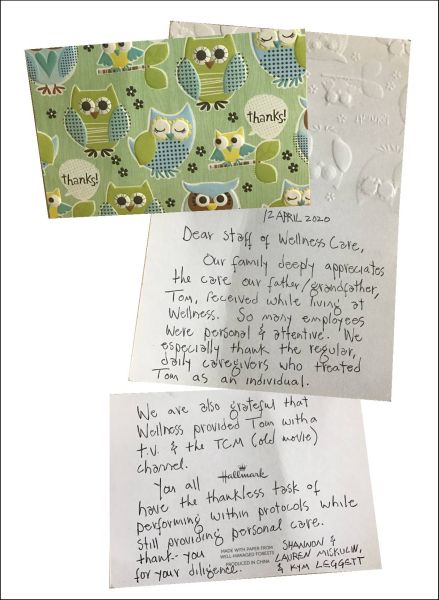 thanks!
thanks!
12 APRIL 2020
Dear Staff of Wellness Care,
Our family deeply appreciates
the care our father/grandfather,
Tom, received while living at
Wellness. So many employees
were personal & attentive. We
especially thank the regular,
daily caregivers who treated
Tom as an individual.
We are also grateful that
Wellness provided Tom with a
t.v. & the TCM (old movie)
channel.
Hallmark
You all
have the thankless task of
performing within protocols while
still providing personal care.
thank-you
for your diligence.
MADE WITH PAPER FROM
WELL-MANAGED FORESTS
PRODUCED IN CHINA
SHANNON &
LAUREN MISKULIN,
& KYM LEGGETT